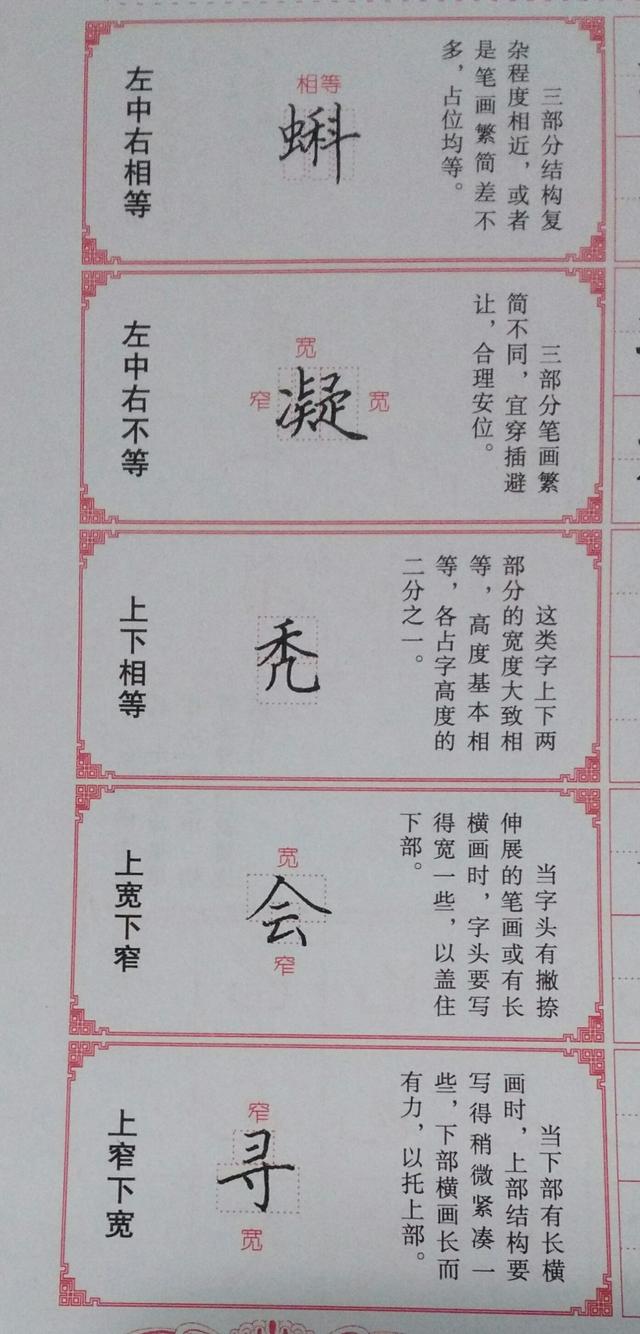 左中右相等
相等
蝌
三部分结构复
杂程度相近，或者
是笔画繁简差不
多，占位均等。
左中右不等
宽
窄
凝
宽
三部分笔画繁
简不同，宜穿插避
让，合理安位。
上下相等
秃
这类字上下两
部分的宽度大致相
等，高度基本相
等，各占字高度的
二分之一。
上宽下窄
宽
会
窄
当字头有撇捺
伸展的笔画或有长
横画时，字头要写
得宽一些，以盖住
下部。
上窄下宽
窄
寻
宽
当下部有长横
画时，上部结构要
写得稍微紧凑一
些，下部横画长而
有力，以托上部。